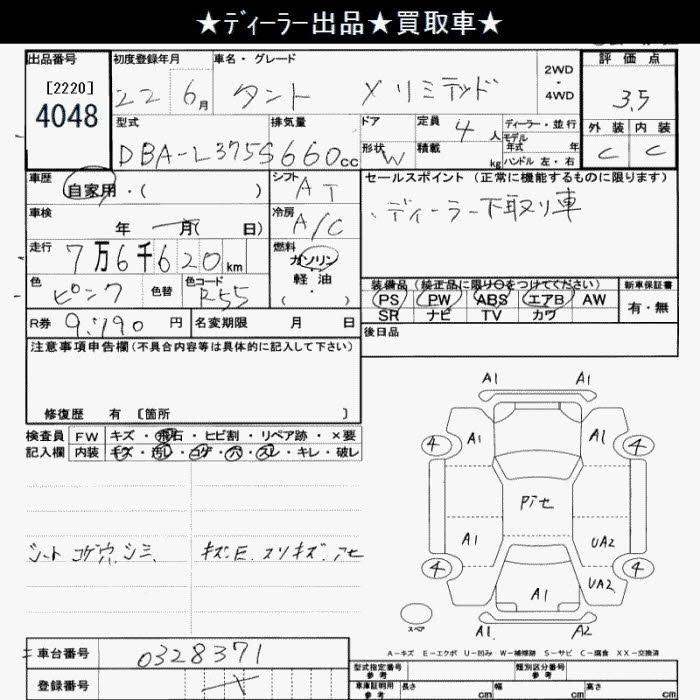 ★ディーラー出品★買取車★
出品番号 初度登録年月 車名・グレード 2WD・4WD 評価点
[2220]
4048
22 6月 タント Xリミテッド 3.5
型式 排気量 ドア 定員 4人 ディーラー・並行 外装 内装
モデル年式 年
DBA-L375S 660cc 形状 W 積載 kg ハンドル 左・右 C C
車歴 自家用・( ) シフト AT セールスポイント (正常に機能するものに限ります)
車検 年 月( 日) 冷房 A/C ディーラー下取り車
走行 7万6千620km 燃料 ガソリン 軽油 ( ・ )
色 ピンク 色替 色コード R55
装備品 (純正品に限り○をつけてください) 新車保証書
PS PW ABS エアB AW 有・無
SR ナビ TV カワ
R券 9,190円 名変期限 月 日 後日品
注意事項申告欄(不具合内容等は具体的に記入して下さい)
修復歴 有 [箇所 ]
検査員 FW キズ・飛石・ヒビ割・リペア跡・×要
記入欄 内装 キズ・汚レ・コゲ・穴・スレ・キレ・破レ
シート コゲ穴.シミ. キズ.E.スリキズ.アセ
A1 A1
4 A1 A1 4
Pアセ
A1 UA2
4 4
A1 UA2
スペア
A1 A2
A-キズ E-エクボ U-凹み W-補修跡 S-サビ C-腐食 XX-交換済
車台番号 0328371
登録番号
型式指定番号 参考 類別区分番号 参考
車庫証明用 参考 長さ cm 幅 cm 高さ cm